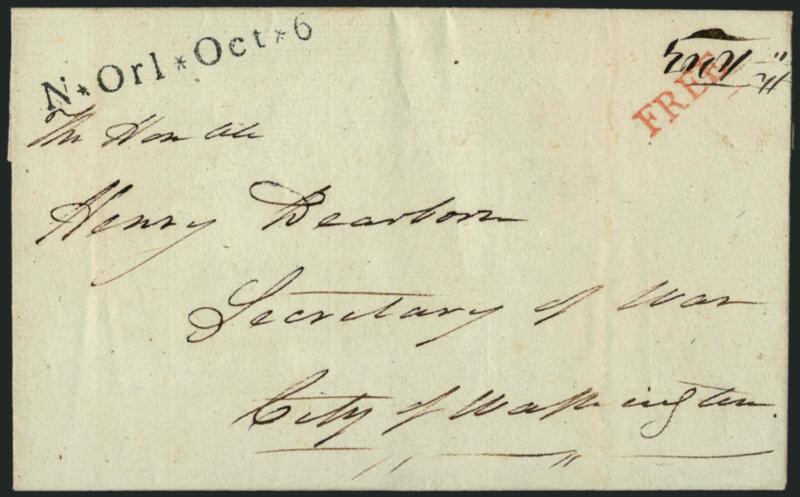 N*Orl*Oct*6
FREE
The Honble
Henry Dearborn
Secretary of War
City of Washington.